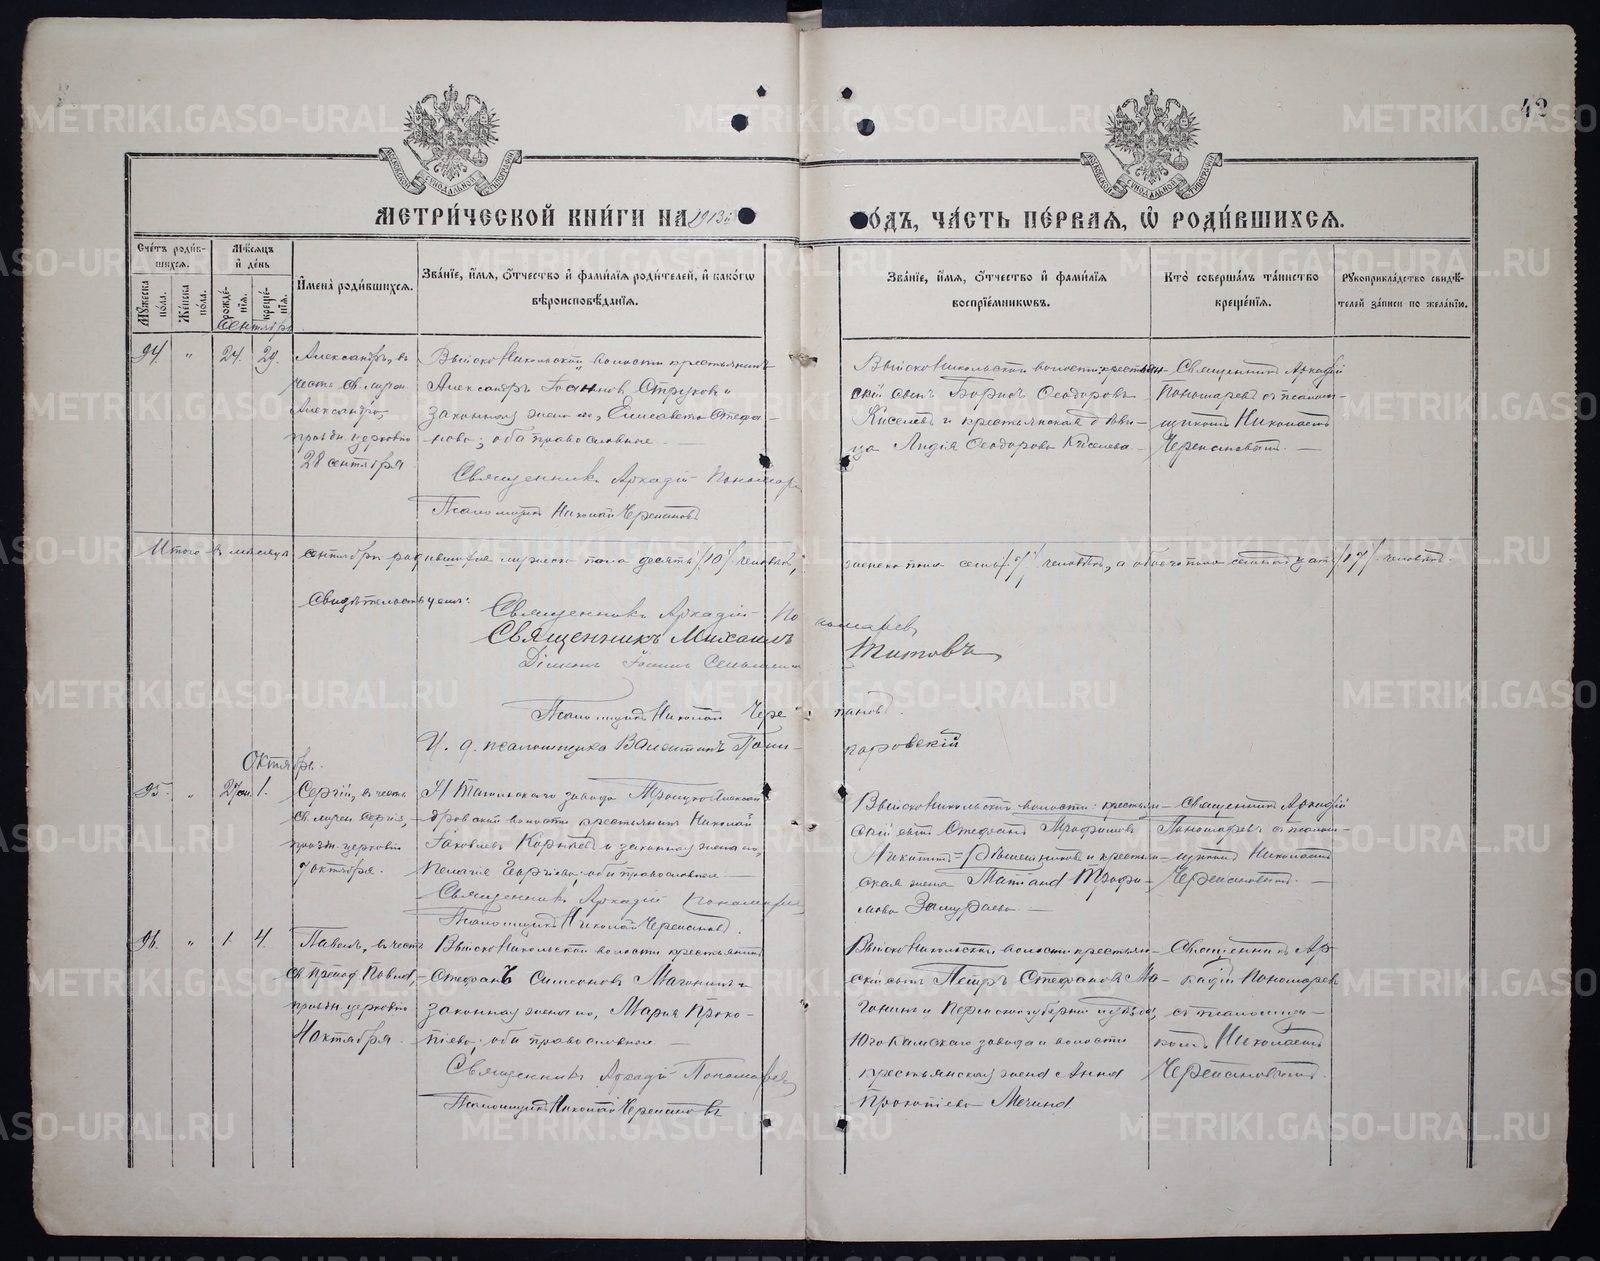 42
МЕТРИ́ЧЕСКОЙ КНИ́ГИ НА 1913й
О́ДЪ, ЧА́СТЬ ПЕ́РВАѦ, Ѡ҆ РОДИ́ВШИХСѦ.
Сче́тъ роди́в-
шихсѧ.
Мꙋ́жеска по́ла.
Же́нска по́ла.
Мѣ́сѧцъ
и҆ де́нь
рожде́-
нїѧ.
креще́-
нїѧ.
И҆мена̀ роди́вшихсѧ.
Зва́нїе, и҆́мѧ, ѻ҆́тчество и҆ фами́лїѧ роди́телей, и҆ како́гѡ
вѣроисповѣ́данїѧ.
Зва́нїе, и҆́мѧ, ѻ҆́тчество и҆ фами́лїѧ
воспрїе́мникѡвъ.
Кто̀ соверша́лъ та́инство
креще́нїѧ.
Рꙋкоприкла́дство свидѣ́-
телей за́писи по жела́нїю.
Сентябрь
94. " 24. 29.
Александръ, въ
честь св. мучен.
Александра,
праздн. церковію
28 сентября
Выйско Никольской волости крестьянинъ
Александръ Іоанновъ Струковъ и
законная жена его, Елисавета Стефа-
нова; оба православные. —
Священникъ Аркадій Пономар
Псаломщикъ Николай Черепановъ
Выйско Никольской волости: крестьян-
скій сынъ Борисъ Ѳеодоровъ
Киселевъ и крестьянская дѣви-
ца Лидія Ѳеодорова Киселева. —
Священникъ Аркадій
Пономаревъ съ псалом-
щикомъ Николаемъ
Черепановымъ. —
Итого въ мѣсяцѣ сентябрѣ родившихся мужеска пола десять /10/ человѣкъ,
женска пола семь /7/ человѣкъ, а обоего пола семнадцать /17/ человѣкъ.
Свидѣтельствуемъ:
Священникъ Аркадій По
номаревъ
Священникъ Михаилъ
Титовъ
Діаконъ Іоаннъ
Псаломщикъ Николай Чере
пановъ.
И. д. псаломщика Валентинъ
Октябрь.
95. " 27 сен. 1.
Сергій, въ честь
св. мучен. Сергія,
праздн. церковію
7 октября.
Н Тагильскаго завода Троицко Алексан-
дровской волости крестьянинъ Николай
Іаковлевъ и законная жена его,
Пелагія Георгіева; оба православные. —
Священникъ Аркадій Пономарев
Псаломщикъ Николай Черепановъ.
Выйско Никольской волости: крестьян-
скій сынъ Стефанъ Трофимовъ
и крестьян-
ская жена Трофи-
мова —
Священникъ Аркадій
Пономаревъ съ псалом-
щикомъ Николаемъ
Черепановымъ. —
96. " 1. 4.
Павелъ, въ честь
св. препод. Павла,
праздн. церковію
4 октября.
Выйско Никольской волости крестьянинъ
Стефанъ Симеоновъ Мазонинъ и
законная жена его, Марія Проко-
піева; оба православные. —
Священникъ Аркадій Пономарев
Псаломщикъ Николай Черепановъ
Выйско Никольской волости крестьян-
скій сынъ Петръ Стефановъ Ма-
зонинъ и Пермской губерніи и уѣзда,
Юго Камскаго завода и волости
крестьянская жена Анна
Прокопіева
Священникъ Ар-
кадій Пономаревъ
съ псаломщи-
комъ Николаемъ
Черепановымъ.
METRIKI.GASO-URAL.RU